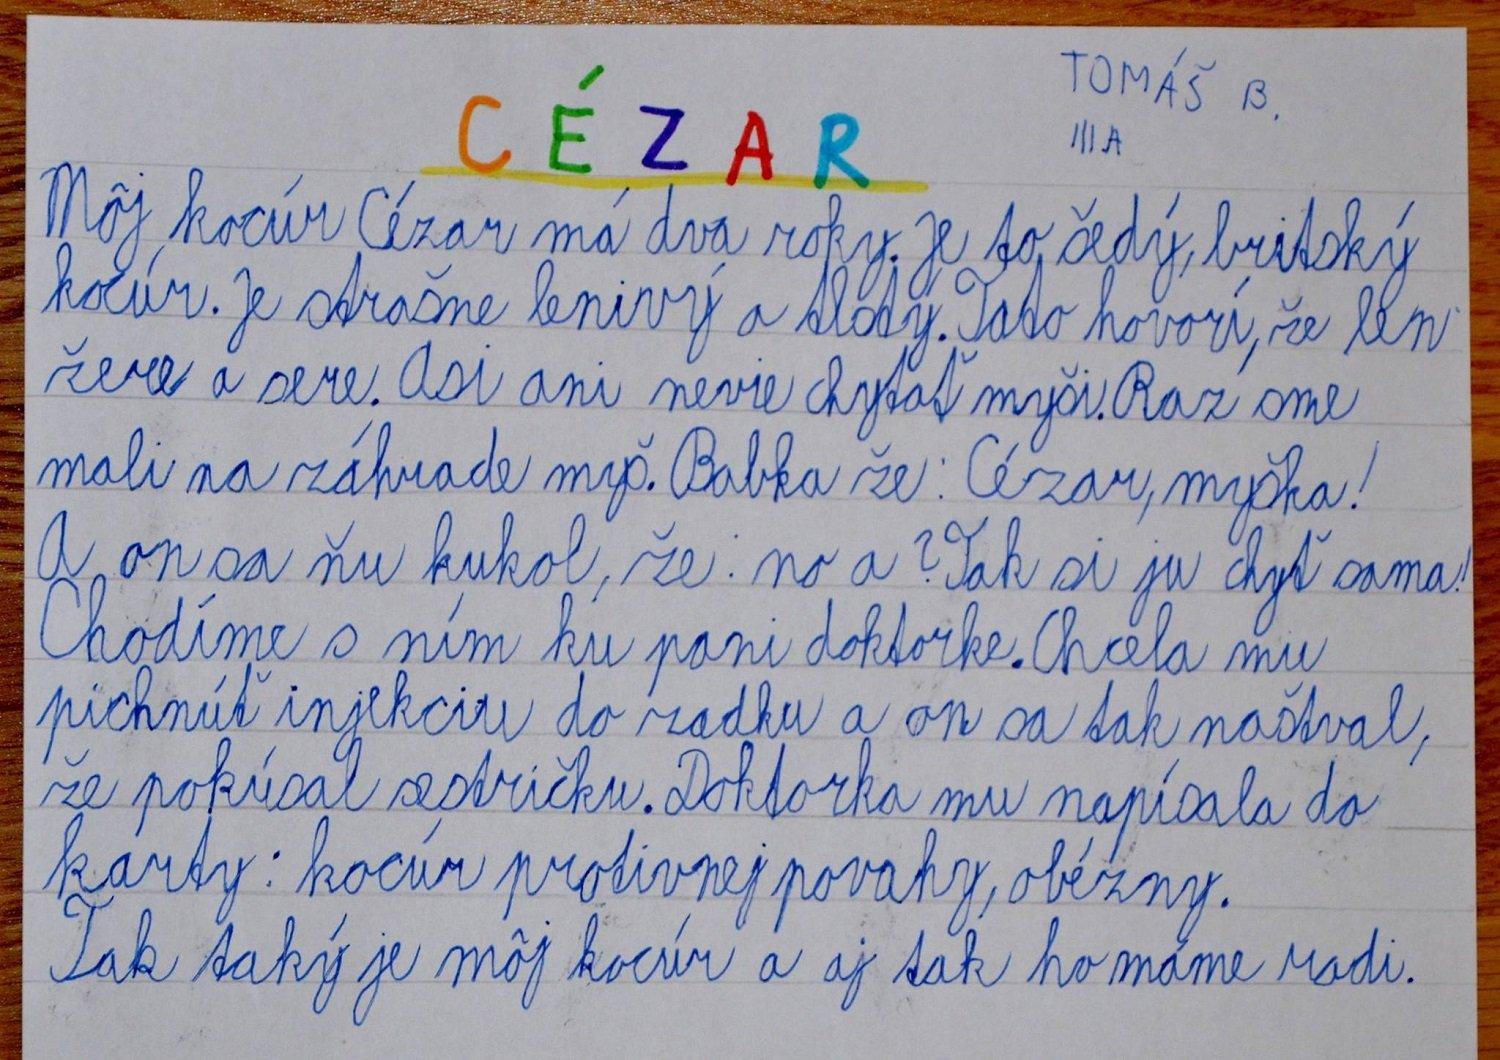 TOMÁŠ B.
CÉZAR
III A
Môj kocúr Cézar má dva roky. Je to čedý, britský
kocúr. Je strašne lenivý a tlstý. Tato hovorí, že len
žere a sere. Asi ani nevie chytať myši. Raz sme
mali na záhrade myš. Babka že: Cézar, myška!
A on sa ňu kukol, že: no a? Tak si ju chyť sama!
Chodíme s ním ku pani doktorke. Chcela mu
pichnúť injekciu do zadku a on sa tak naštval,
že pokúsal sestričku. Doktorka mu napísala do
karty: kocúr protivnej povahy, obézny.
Tak taký je môj kocúr a aj tak ho máme radi.